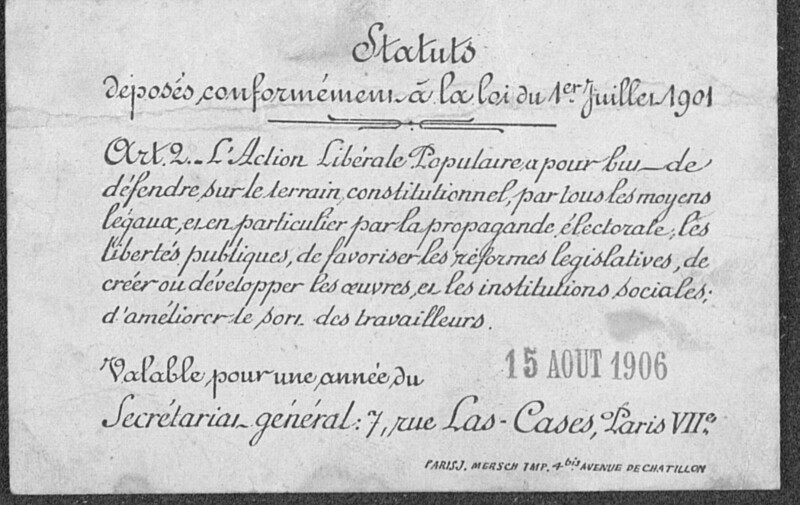 Statuts
déposés conformément à la loi du 1er Juillet 1901
Art. 2._ L'Action Libérale Populaire a pour but de
défendre, sur le terrain constitutionnel, par tous les moyens
légaux, et en particulier par la propagande électorale, les
libertés publiques, de favoriser les réformes législatives, de
créer ou développer les œuvres et les institutions sociales;
d'améliorer le sort des travailleurs.
Valable pour une année du 15 AOUT 1906
Secrétariat général: 7, rue Las-Cases, Paris VIIe
PARIS J. MERSCH IMP. 4bis AVENUE DE CHATILLON